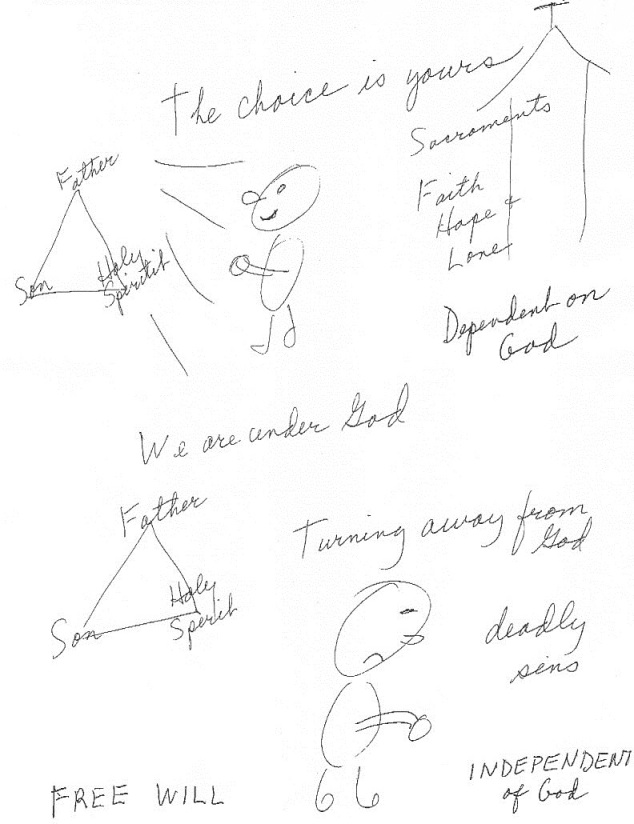 The choice is yours
Sacraments
Father
Faith
Hape &
Love
Son
Holy
Spiritit
Dependent on
God
We are under God
Father
Turning away from
God
Holy
Sperit
Son
deadly
sins
FREE WILL
INDEPENDENT
of God